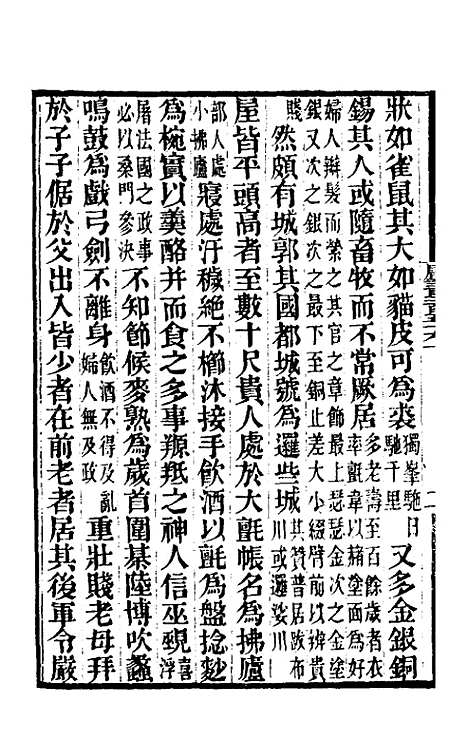 狀如雀鼠其大如貓皮可為裘獨峯駞日馳千里又多金銀銅
錫其人或隨畜牧而不常厥居多老壽至百餘歲者衣率氊韋以赭塗面為好
婦人辮髮而縈之其官之章飾最上瑟瑟金次之金塗
銀又次之銀次之最下至銅止差大小綴臂前以辨貴
賤然頗有城郭其國都城號為邏些城其贊普居跋布川或邏娑川
屋皆平頭高者至數十尺貴人處於大氈帳名為拂廬
部人處小拂廬寢處汙穢絕不櫛沐接手飲酒以氈為盤捻麨
為椀實以羹酪并而食之多事羱羝之神人信巫覡喜浮
屠法國之政事必以桑門參決不知節候麥熟為歲首圍棊陸博吹蠡
鳴鼓為戲弓劍不離身飲酒不得及亂婦人無及政重壯賤老母拜
於子子倨於父出入皆少者在前老者居其後軍令嚴